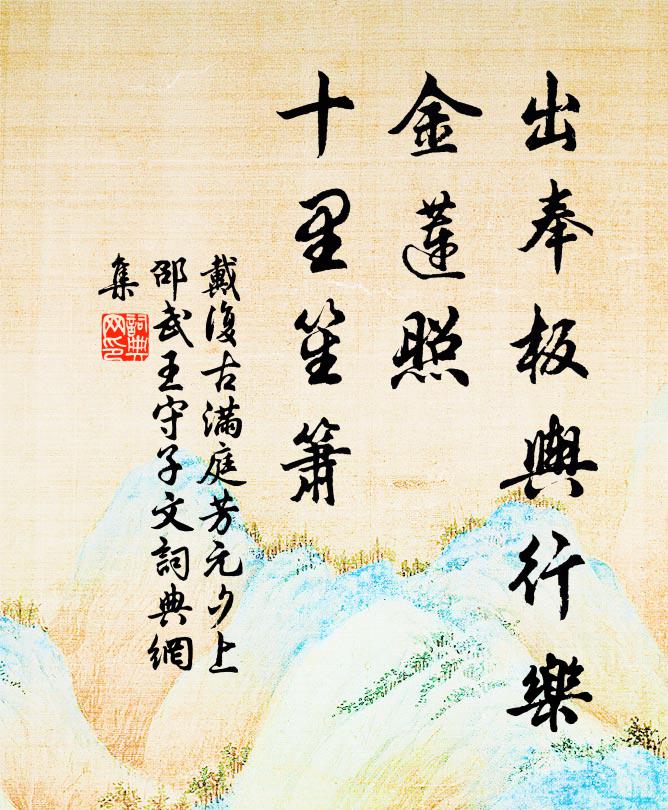 出奉板輿行樂
金蓮照
十里笙簫
戴復古滿庭芳元夕上
邵武王守子文詞典網
集
詞典
网印